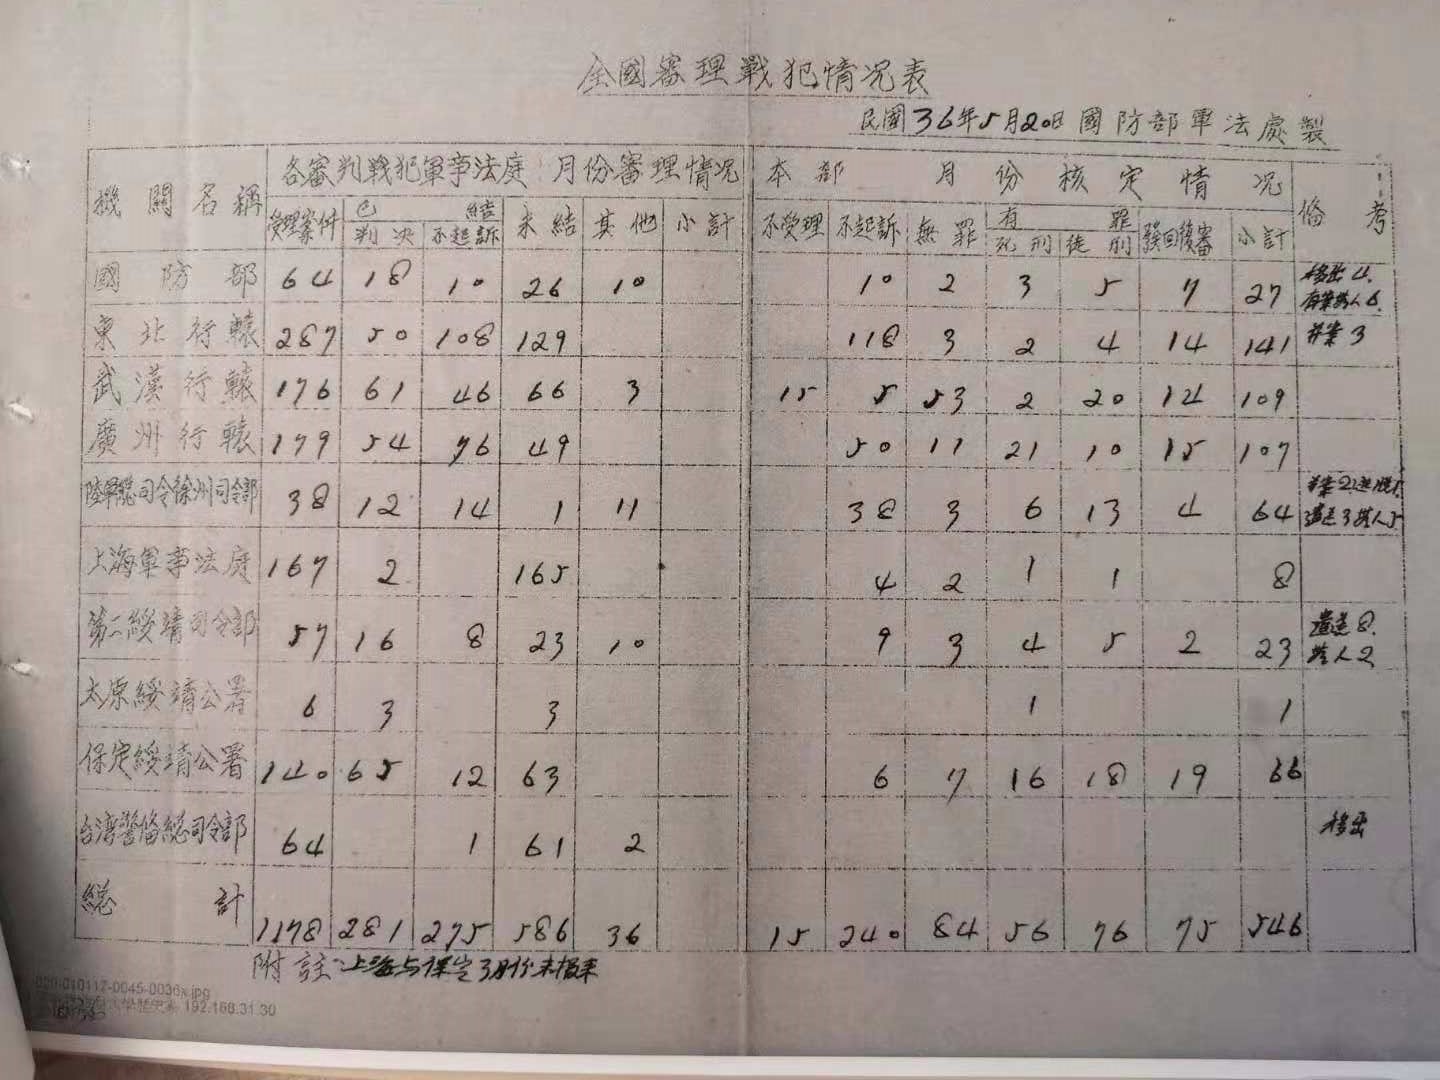 全國審理戰犯情况表
民國36年5月20日國防部軍法處製
機關名稱 各審判戰犯軍事法庭 月份審理情况 本部 月份核定情况 備考
受理案件 已結 未結 其他 小計 不受理 不起訴 無罪 有罪 發回復審 小計
判决 不起訴 死刑 徒刑
國防部 64 18 10 26 10 10 2 3 5 7 27 移出4.
東北行轅 287 50 108 129 118 3 2 4 14 141 并案3
武漢行轅 176 61 46 66 3 15 5 53 2 20 14 109
廣州行轅 179 54 76 49 50 11 21 10 15 107
陸軍總司令徐州司令部 38 12 14 1 11 38 3 6 13 4 64
上海軍事法庭 167 2 165 4 2 1 1 8
第二綏靖司令部 57 16 8 23 10 9 3 4 5 2 23 遣送8.
太原綏靖公署 6 3 3 1 1
保定綏靖公署 140 65 12 63 6 7 16 18 19 66
台湾警備總司令部 64 1 61 2 移出
總計 1178 281 275 586 36 15 240 84 56 76 75 546
附註：上海与保定3月份未报来
020-010117-0045-0036x.jpg
192.168.31.30